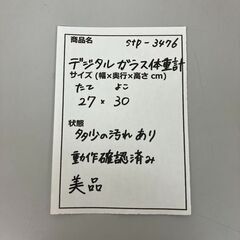 商品名 stp-3476
デジタルガラス体重計
サイズ(幅×奥行×高さ cm)
たて よこ
27 × 30
状態
多少の汚れあり
動作確認済み
美品